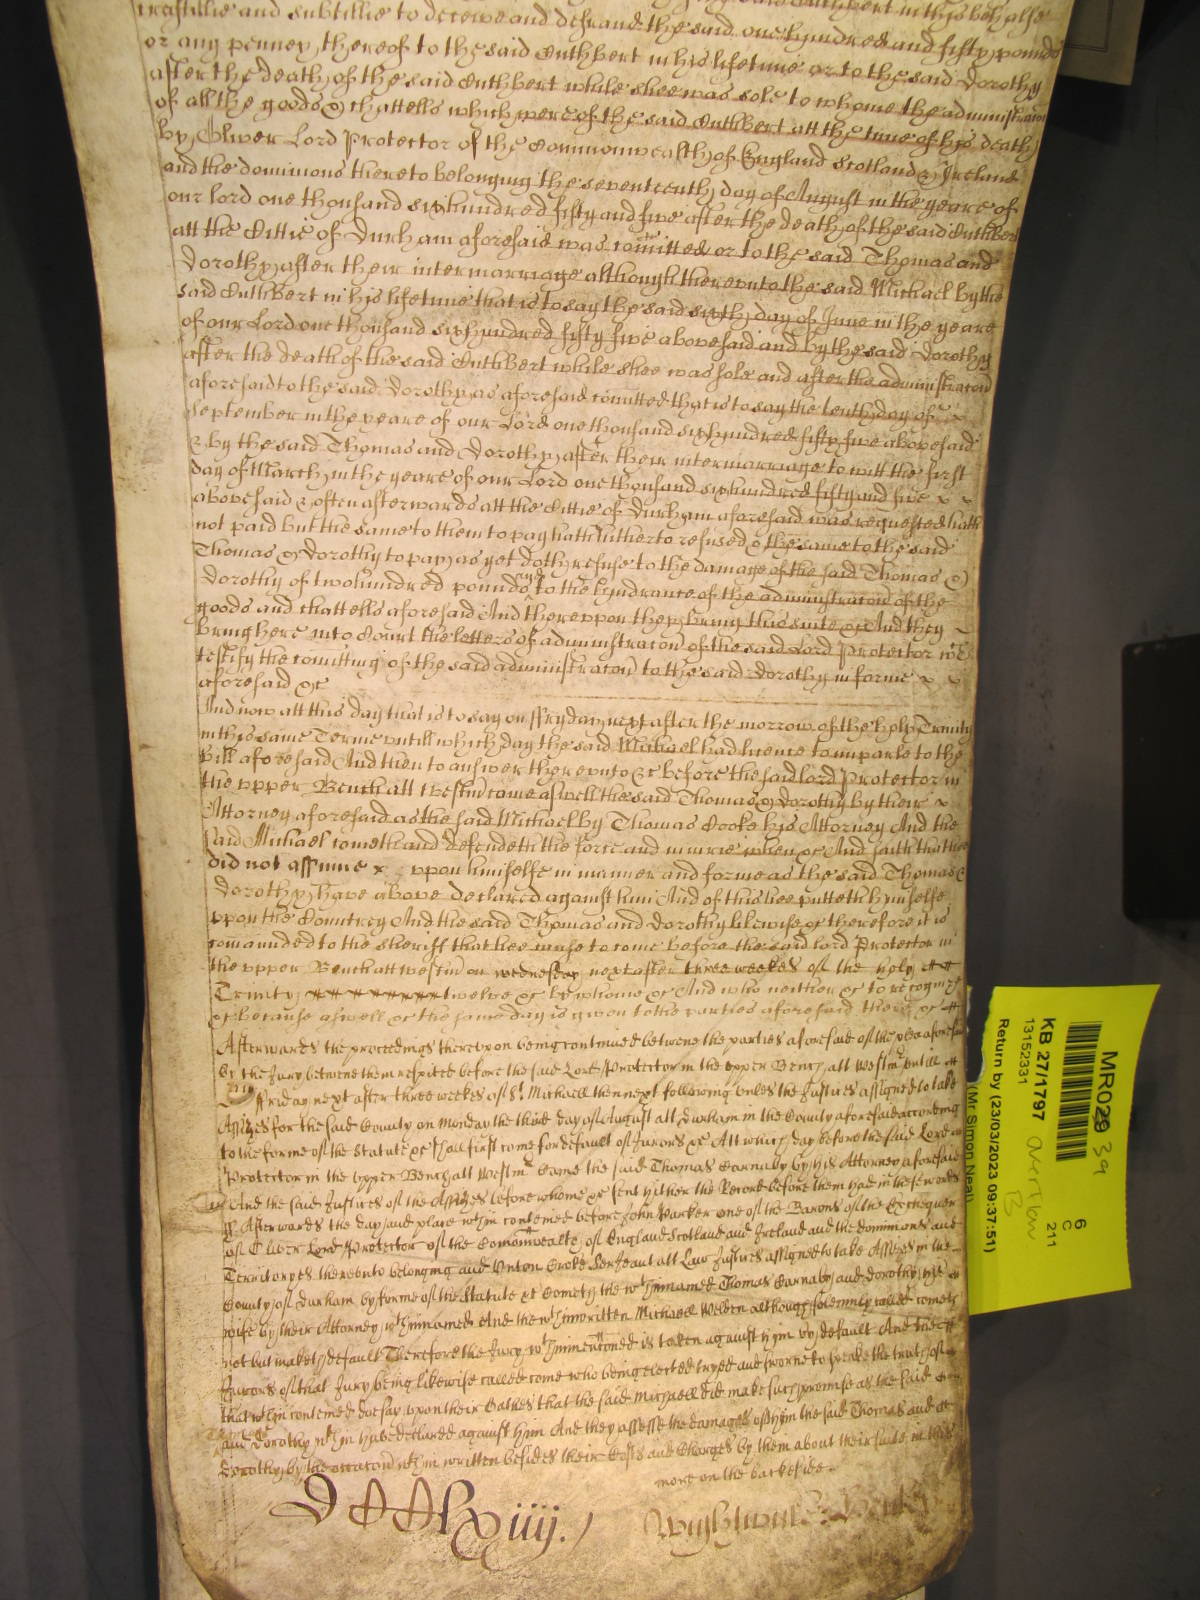 craftillie and subtillie to deceive and defraud the said one hundred and fifty pounds
or any penney thereof to the said Cuthbert in his lifetime or to the said Dorothy
after the death of the said Cuthbert while shee was sole to whome the administracon
of all the goods & chattells which were of the said Cuthbert att the time of his death
by Oliver Lord Protector of the Commonwealth of England Scotland & Ireland
and the dominions thereto belonging the seventeenth day of August in the yeare of
our lord one thousand sixhundred fifty and five after the death of the said Cuthbert
att the Cittie of Durham aforesaid was comitted or to the said Thomas and
Dorothy after their intermarriage although thereunto the said Michael by the
said Cuthbert in his lifetime that is to say the said sixth day of June in the yeare
of our Lord one thousand sixhundred fifty five abovesaid and by the said Dorothy
after the death of the said Cuthbert while shee was sole and after the administracon
aforesaid to the said Dorothy as aforesaid comitted that is to say the tenth day of
September in the yeare of our Lord one thousand sixhundred fifty five abovesaid
& by the said Thomas and Dorothy after their intermarriage to witt the first
day of March in the yeare of our Lord one thousand sixhundred fifty and five
abovesaid & often afterwards att the Cittie of Durham aforesaid was requested hath
not paid but the same to them to pay hath hitherto refused & the same to the said
Thomas & Dorothy to pay as yet doth refuse to the damage of the said Thomas &
Dorothy of twohundred pounds & to the hindrance of the administracon of the
goods and chattells aforesaid And thereupon they bring this suite &c And they
bring here into Court the letters of administracon of the said Lord Protector wch
testify the comitting of the said administracon to the said Dorothy in forme
aforesaid &c
And now att this day that is to say on ffryday next after the morrow of the holy Trinity
in this same Terme untill which day the said Michael had licence to imparle to the
Bill aforesaid And then to answer thereunto &c before the said lord Protector in
the upper Bench att westm come aswell the said Thomas & Dorothy by their
Attorney aforesaid as the said Michael by Thomas Cooke his Attorney And the
said Michael cometh and defendeth the force and iniurie when &c And saith that hee
did not assume upon himselfe in manner and forme as the said Thomas &
Dorothy have above declared against him And of this hee putteth himselfe
upon the Countrey And the said Thomas and Dorothy likewise &c therefore it is
comaunded to the sheriff that hee cause to come before the said lord Protector in
the upper Bench att westm on wednesday next after three weekes of the holy
Trinity twelve &c by whome &c And who neither &c to recognize
&c because aswell &c the same day is given to the parties aforesaid there &c
Afterwards the proceedings thereupon being continued betweene the parties aforesaid of the plea aforesaid
by the Jury betweene them respited before the said Lord Protector in the upper Bench att Westm untill
Friday next after three weekes of St Michaell then next following unles the Justices assigned to take
Assizes for the said County on Monday the third day of August att Durham in the County aforesaid according
to the forme of the Statute &c shall first come for default of Jurors &c Att which day before the said Lord
Protector in the upper Bench att Westm Came the said Thomas Carnaby by his Attorney aforesaid
And the said Justices of the Assizes before whome &c sent hither the Record before them had in these words
ss Afterwards the day and place within conteined before John Parker one of the Barons of the Exchequer
of Oliver Lord Protector of the Comonwealth of England Scotland and Ireland and the dominions and
Territoryes thereunto belonging and Unton Croke Serjeant att Law Justices assigned to take Assizes in the
County of Durham by forme of the Statute &c Cometh the wthinnamed Thomas Carnaby and Dorothy his
wife by their Attorney wthinnamed And the wthinwritten Michaell Welden although solemnly called cometh
not but maketh default Therefore the Jury wthinmentioned is taken against him by default And the
Jurors of that Jury being likewise called come who being elected tryed and sworne to speake the truth of
that wthin conteined doe say upon their Oathes that the said Michaell did make such promise as the said
and Dorothy wthin have declared against him And they assesse the damages of him the said Thomas and
Dorothy by the occacon wthin written besides their Costs and Charges by them about their suite in this
more on the backeside
DCCClxiiij.
MR029 39
KB 27/1797
13152331
Return by (23/03/2023 09:37:51)
(Mr Simon Neal)
6
C
211
Overflow
B